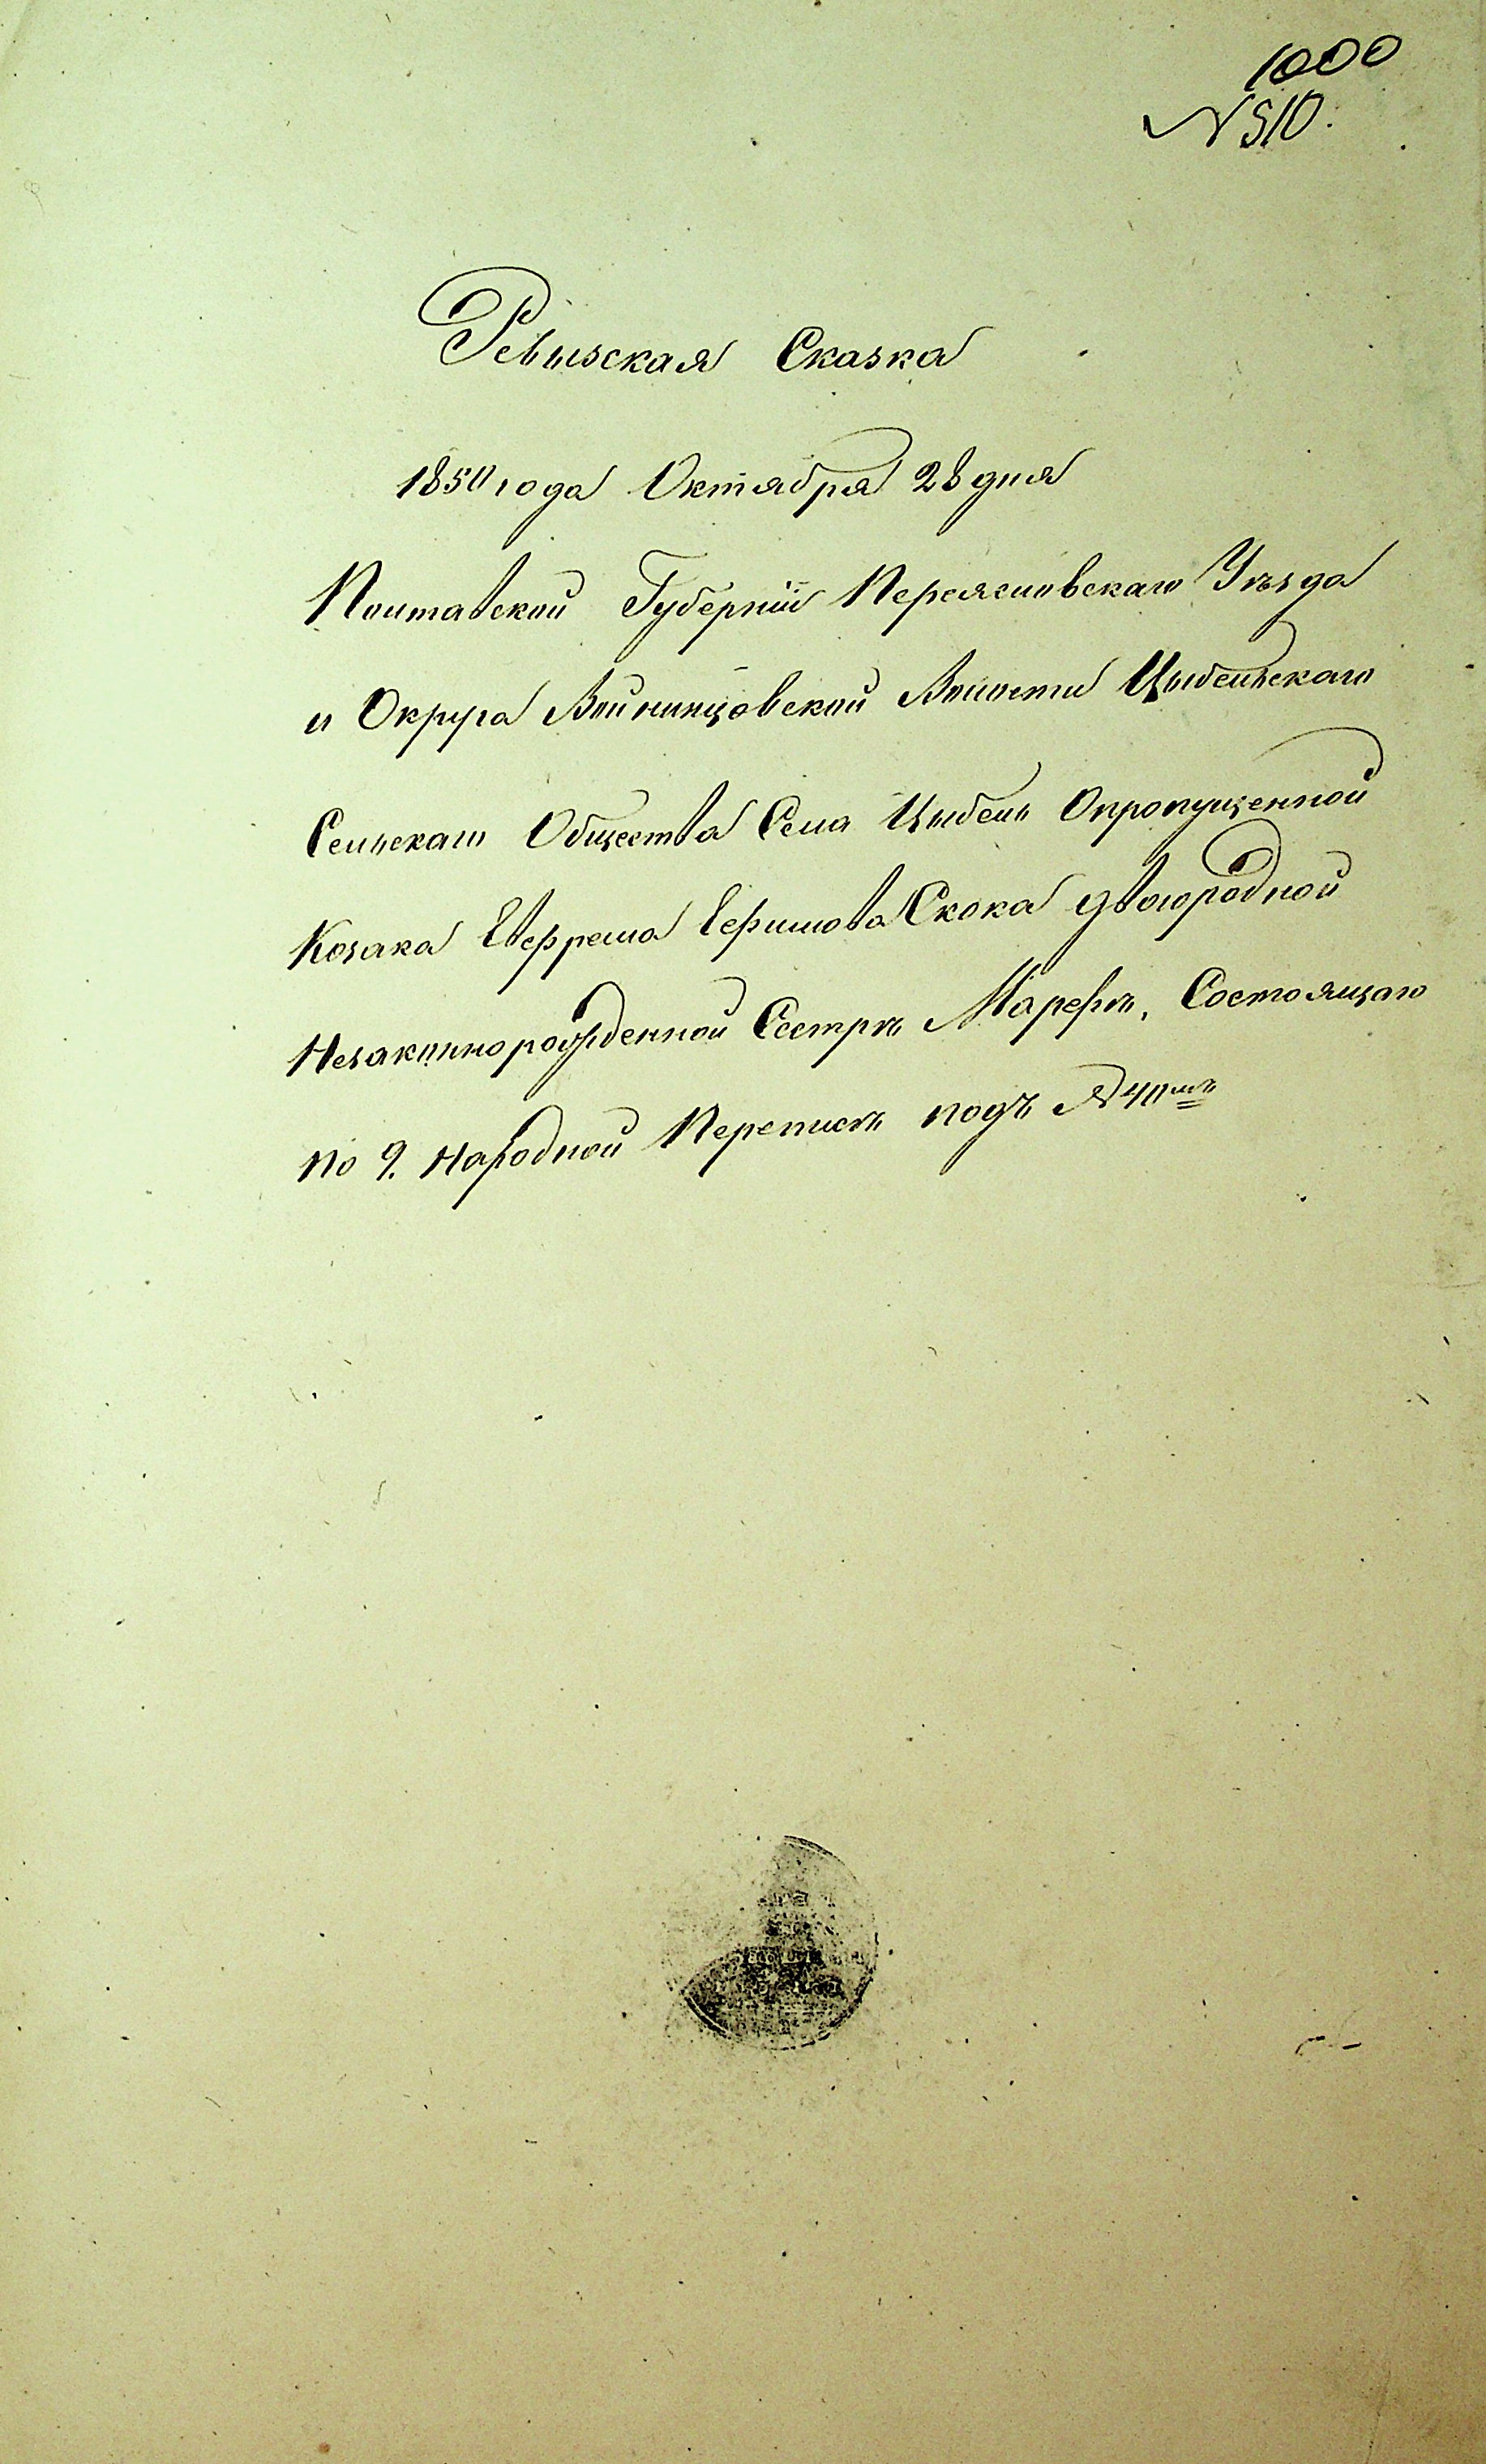 1000
N 510.
Ревизская Сказка
1850 года Октября 28 дня
Полтавской Губерніи Переяславскаго Уѣзда
и Округа Войнинцовской Волости Цыбельскаго
Сельскаго Общества Села Цыбель О пропущенной
Козака Ефрема Ефимова Скока двоюродной
Незаконнорожденной Сестрѣ Марефѣ, Состоящаго
по 9. Народной Переписѣ подъ № 40мъ